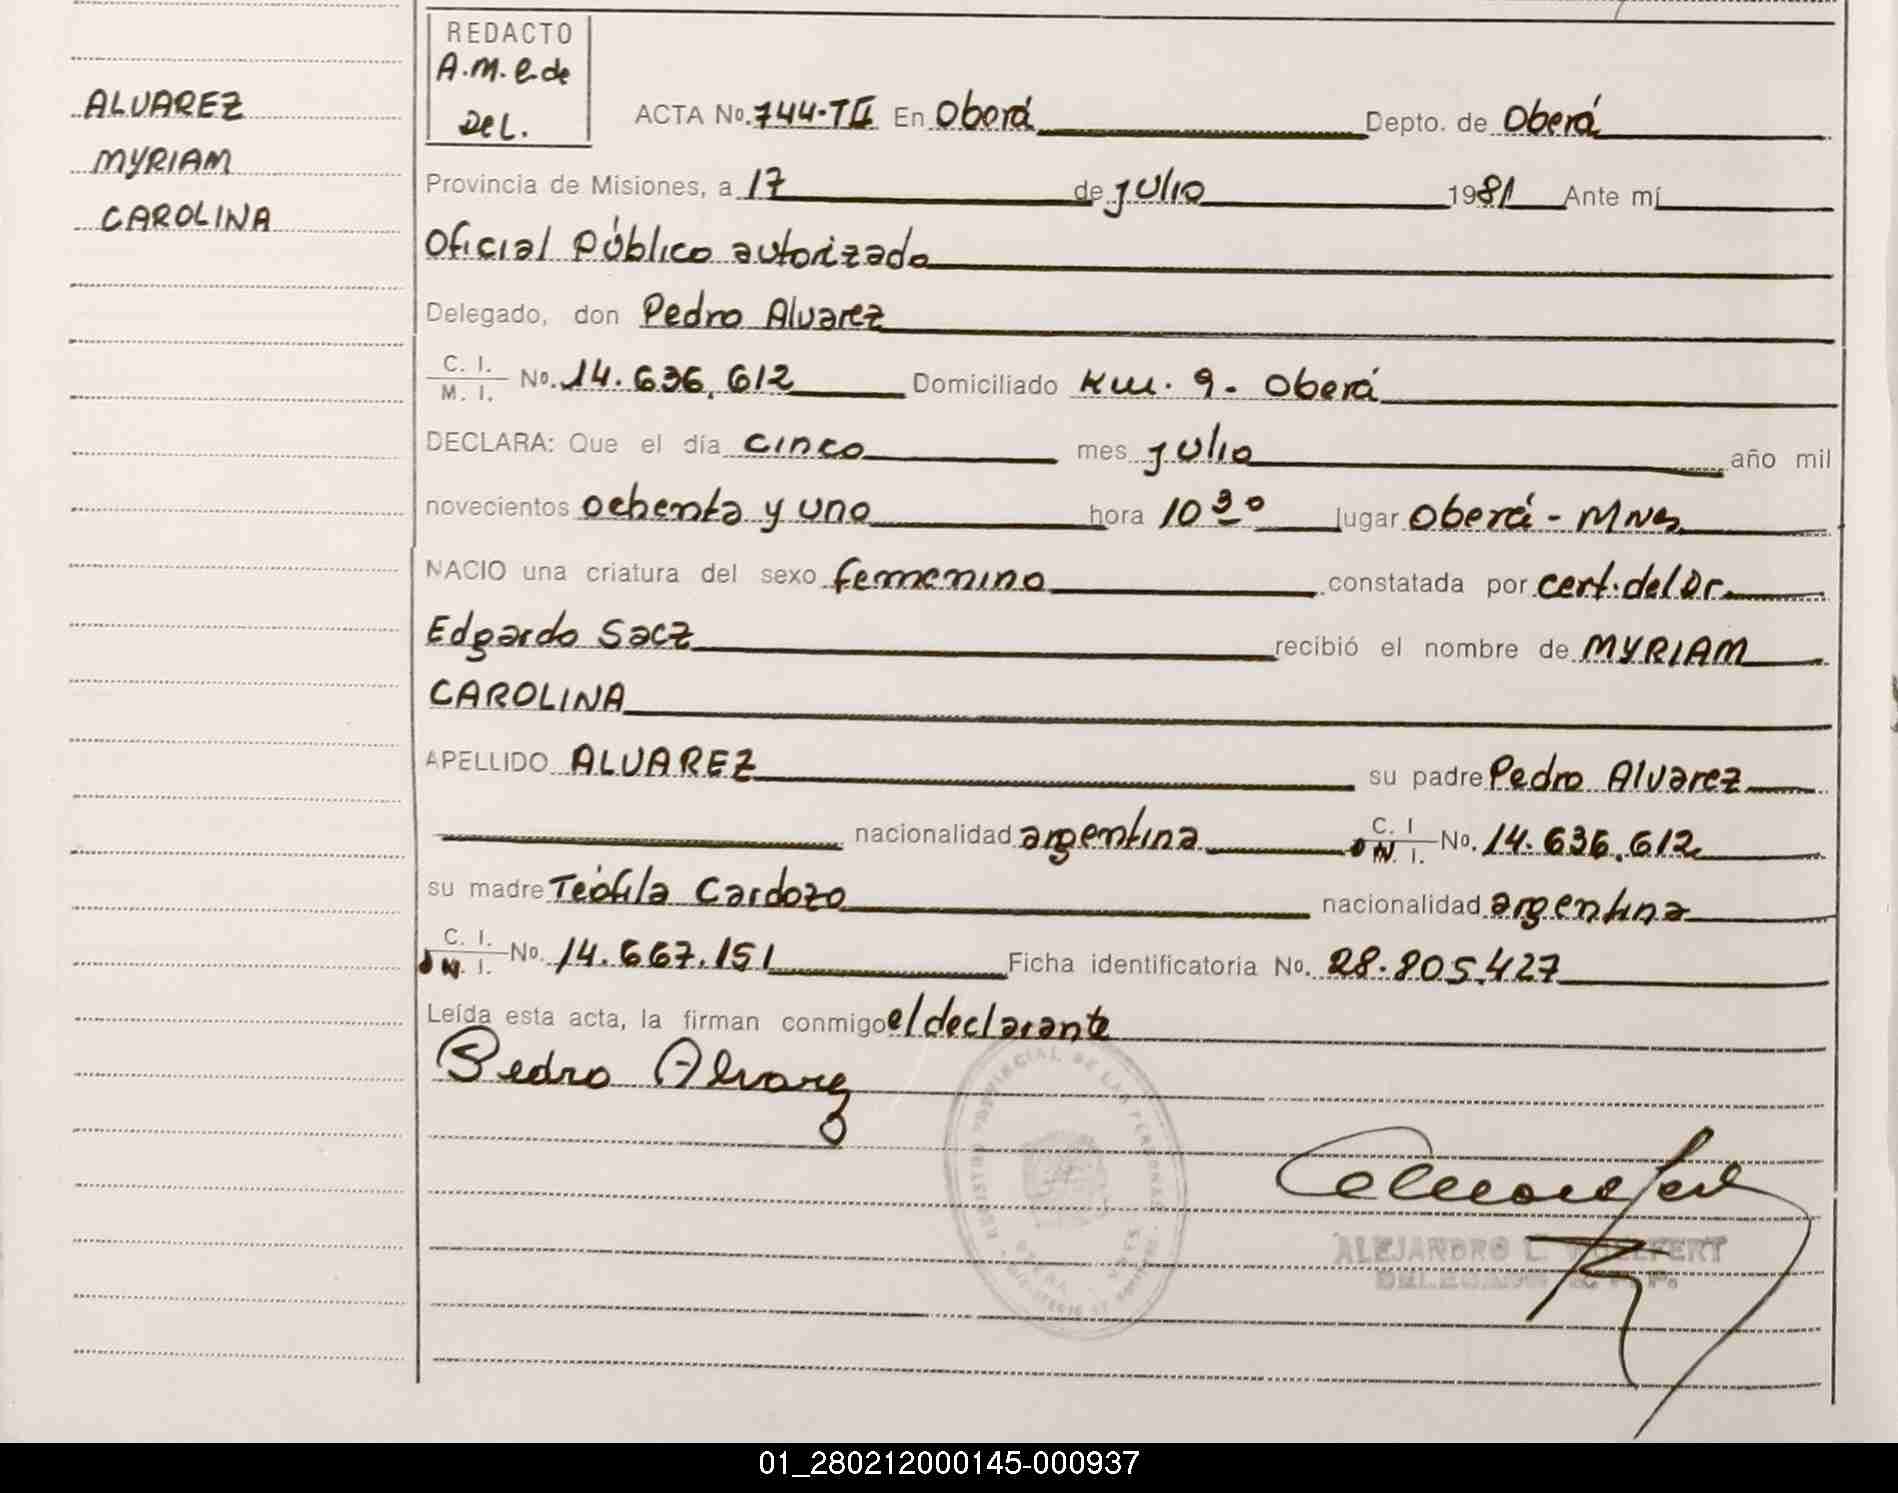 ALVAREZ
MYRIAM
CAROLINA
REDACTO
A.M.C. de
Del.
ACTA No. 744-TII En Oberá Depto. de Oberá
Provincia de Misiones, a 17 de julio 1981 Ante mí
Oficial Público autorizado
Delegado, don Pedro Alvarez
C. I. M. I. No. 14.636.612 Domiciliado Km. 9 - Oberá
DECLARA: Que el día cinco mes julio año mil
novecientos ochenta y uno hora 10 30 lugar Oberá - Mnes
NACIO una criatura del sexo femenino constatada por cert. del Dr.
Edgardo Sacz recibió el nombre de MYRIAM
CAROLINA
APELLIDO ALVAREZ su padre Pedro Alvarez
nacionalidad argentina C. I D N. I. No. 14.636.612
su madre Teófila Cardozo nacionalidad argentina
C. I. D N. I. No. 14.667.151 Ficha identificatoria No. 28.805.427
Leída esta acta, la firman conmigo el declarante
Pedro Alvarez
REGISTRO PROVINCIAL DE LAS PERSONAS
ALEJANDRO L. WOLFFERT
DELEGADO
01_280212000145-000937